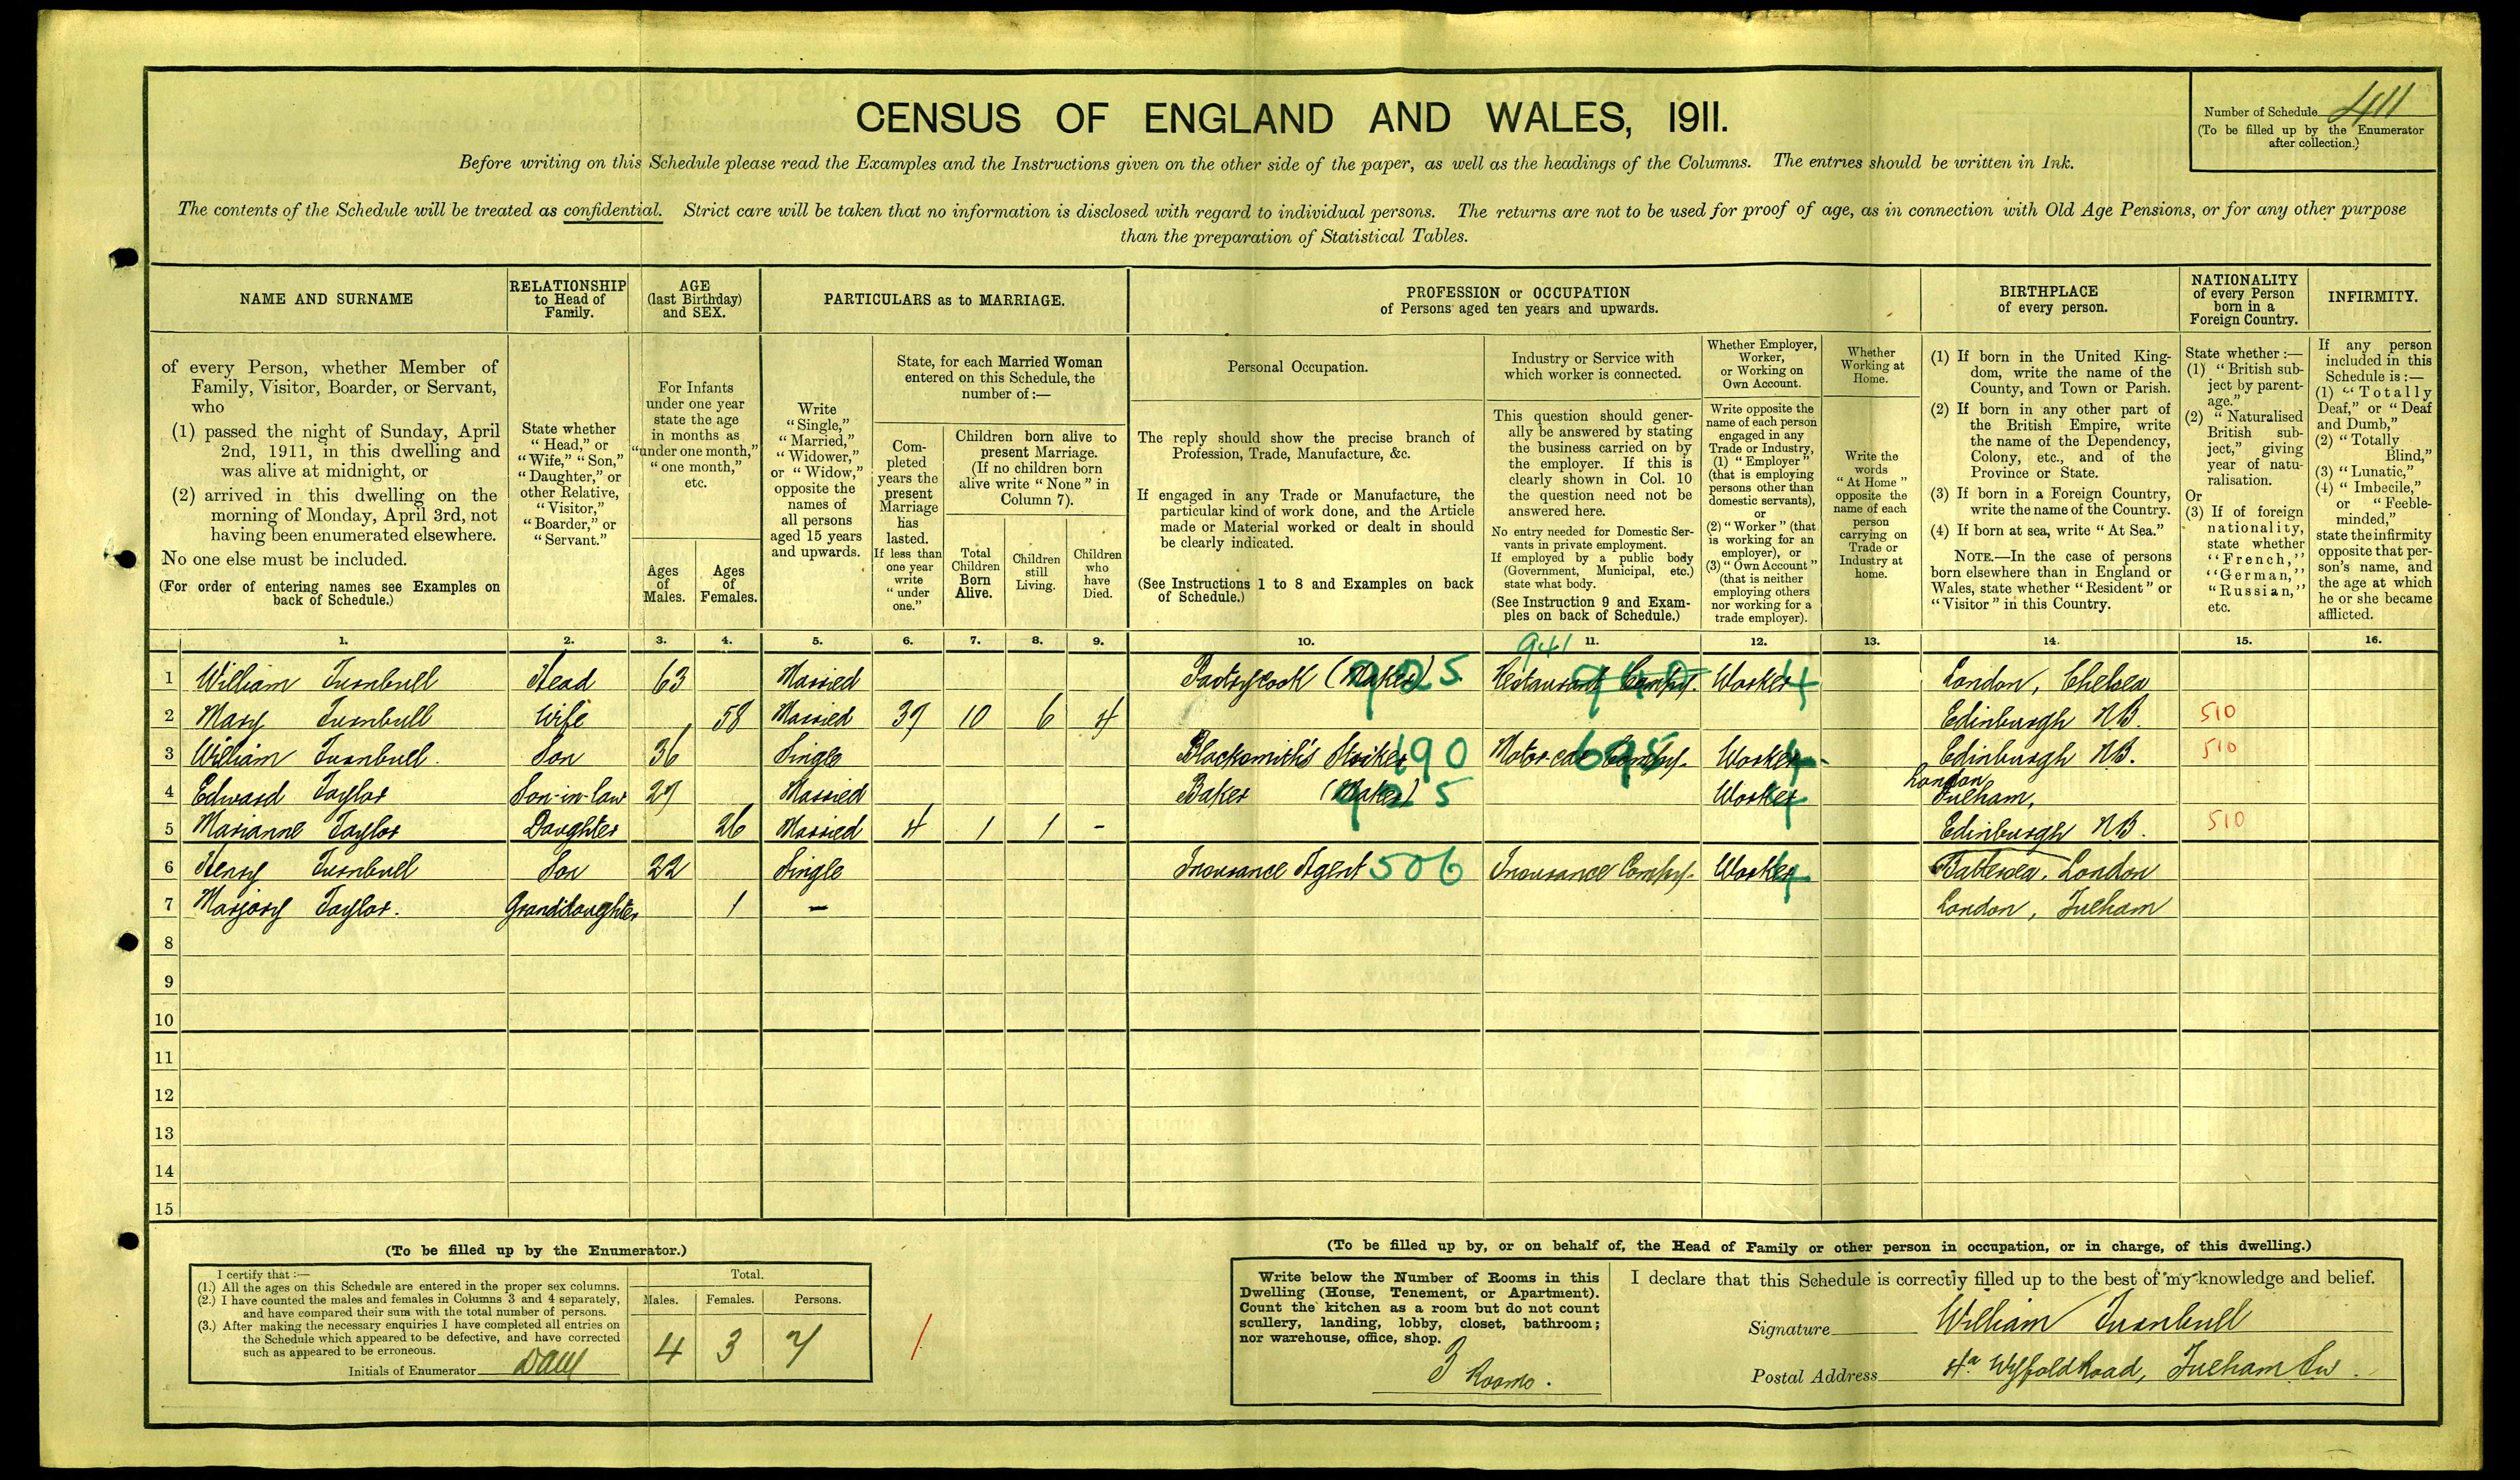 CENSUS OF ENGLAND AND WALES, 1911.
Number of Schedule 411
(To be filled up by the Enumerator
after collection.)
Before writing on this Schedule please read the Examples and the Instructions given on the other side of the paper, as well as the headings of the Columns. The entries should be written in Ink.
The contents of the Schedule will be treated as confidential. Strict care will be taken that no information is disclosed with regard to individual persons. The returns are not to be used for proof of age, as in connection with Old Age Pensions, or for any other purpose
than the preparation of Statistical Tables.
NAME AND SURNAME
of every Person, whether Member of
Family, Visitor, Boarder, or Servant,
who
(1) passed the night of Sunday, April
2nd, 1911, in this dwelling and
was alive at midnight, or
(2) arrived in this dwelling on the
morning of Monday, April 3rd, not
having been enumerated elsewhere.
No one else must be included.
(For order of entering names see Examples on
back of Schedule.)
RELATIONSHIP
to Head of
Family.
State whether
"Head," or
"Wife," "Son,"
"Daughter," or
other Relative,
"Visitor,"
"Boarder," or
"Servant."
AGE
(last Birthday)
and SEX.
For Infants
under one year
state the age
in months as
"under one month,"
"one month,"
etc.
Ages
of
Males.
Ages
of
Females.
PARTICULARS as to MARRIAGE.
Write
"Single,"
"Married,"
"Widower,"
or "Widow,"
opposite the
names of
all persons
aged 15 years
and upwards.
State, for each Married Woman
entered on this Schedule, the
number of:—
Com-
pleted
years the
present
Marriage
has
lasted.
If less than
one year
write
"under
one."
Children born alive to
present Marriage.
(If no children born
alive write "None" in
Column 7).
Total
Children
Born
Alive.
Children
still
Living.
Children
who
have
Died.
PROFESSION or OCCUPATION
of Persons aged ten years and upwards.
Personal Occupation.
The reply should show the precise branch of
Profession, Trade, Manufacture, &c.
If engaged in any Trade or Manufacture, the
particular kind of work done, and the Article
made or Material worked or dealt in should
be clearly indicated.
(See Instructions 1 to 8 and Examples on back
of Schedule.)
Industry or Service with
which worker is connected.
This question should gener-
ally be answered by stating
the business carried on by
the employer. If this is
clearly shown in Col. 10
the question need not be
answered here.
No entry needed for Domestic Ser-
vants in private employment.
If employed by a public body
(Government, Municipal, etc.)
state what body.
(See Instruction 9 and Exam-
ples on back of Schedule.)
Whether Employer,
Worker,
or Working on
Own Account.
Write opposite the
name of each person
engaged in any
Trade or Industry,
(1) "Employer"
(that is employing
persons other than
domestic servants),
or
(2) "Worker" (that
is working for an
employer), or
(3) "Own Account"
(that is neither
employing others
nor working for a
trade employer).
Whether
Working at
Home.
Write the
words
"At Home"
opposite the
name of each
person
carrying on
Trade or
Industry at
home.
BIRTHPLACE
of every person.
(1) If born in the United King-
dom, write the name of the
County, and Town or Parish.
(2) If born in any other part of
the British Empire, write
the name of the Dependency,
Colony, etc., and of the
Province or State.
(3) If born in a Foreign Country,
write the name of the Country.
(4) If born at sea, write "At Sea."
NOTE.—In the case of persons
born elsewhere than in England or
Wales, state whether "Resident" or
"Visitor" in this Country.
NATIONALITY
of every Person
born in a
Foreign Country.
State whether:—
(1) "British sub-
ject by parent-
age."
(2) "Naturalised
British sub-
ject," giving
year of natu-
ralisation.
Or
(3) If of foreign
nationality,
state whether
"French,"
"German,"
"Russian,"
etc.
INFIRMITY.
If any person
included in this
Schedule is:—
(1) "Totally
Deaf," or "Deaf
and Dumb,"
(2) "Totally
Blind,"
(3) "Lunatic,"
(4) "Imbecile,"
or "Feeble-
minded,"
state the infirmity
opposite that per-
son's name, and
the age at which
he or she became
afflicted.
1. 2. 3. 4. 5. 6. 7. 8. 9. 10. 11. 12. 13. 14. 15. 16.
941
1 William Turnbull Head 63 Married Pastrycook (Maker) 925 Restaurant Compy. Worker London, Chelsea
2 Mary Turnbull Wife 58 Married 37 10 6 4 Edinburgh NB. 510
3 William Turnbull. Son 36 Single Blacksmith's Striker 190 Motor-car Compy. Worker Edinburgh NB. 510
4 Edward Taylor Son-in-law 27 Married Baker (Maker) 925 Worker London Fulham,
5 Marianne Taylor Daughter 26 Married 4 1 1 - Edinburgh NB. 510
6 Henry Turnbull Son 22 Single Insurance Agent 506 Insurance Compy. Worker Battersea, London
7 Marjory Taylor. Granddaughter 1 - London, Fulham
8
9
10
11
12
13
14
15
(To be filled up by the Enumerator.)
I certify that:—
(1.) All the ages on this Schedule are entered in the proper sex columns.
(2.) I have counted the males and females in Columns 3 and 4 separately,
and have compared their sum with the total number of persons.
(3.) After making the necessary enquiries I have completed all entries on
the Schedule which appeared to be defective, and have corrected
such as appeared to be erroneous.
Initials of Enumerator
Total.
Males. Females. Persons.
4 3 7
(To be filled up by, or on behalf of, the Head of Family or other person in occupation, or in charge, of this dwelling.)
Write below the Number of Rooms in this
Dwelling (House, Tenement, or Apartment).
Count the kitchen as a room but do not count
scullery, landing, lobby, closet, bathroom;
nor warehouse, office, shop.
3 Rooms.
I declare that this Schedule is correctly filled up to the best of my knowledge and belief.
Signature William Turnbull
Postal Address 4a Wyfold Road, Fulham SW.